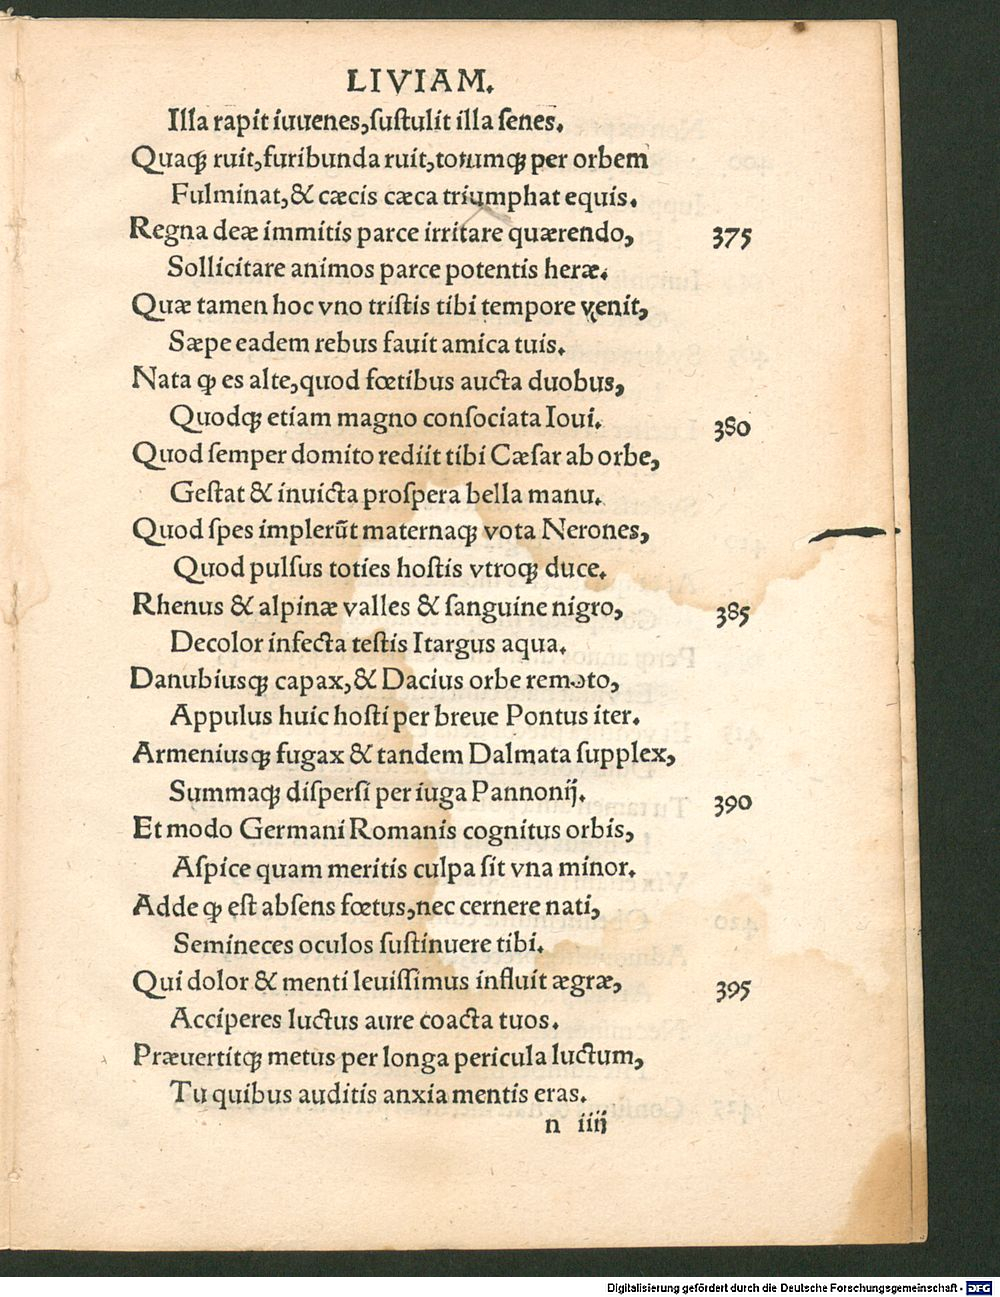 LIVIAM.
Illa rapit iuuenes,ſuſtulit illa ſenes.
Quaqꝫ ruit,furibunda ruit,totumqꝫ per orbem
Fulminat,& cæcis cæca triumphat equis.
Regna deæ immitis parce irritare quærendo, 375
Sollicitare animos parce potentis heræ.
Quæ tamen hoc vno triſtis tibi tempore venit,
Sæpe eadem rebus fauit amica tuis.
Nata ꝙ es alte,quod fœtibus aucta duobus,
Quodqꝫ etiam magno conſociata Ioui. 380
Quod ſemper domito rediit tibi Cæſar ab orbe,
Geſtat & inuicta proſpera bella manu.
Quod ſpes implerūt maternaqꝫ vota Nerones,
Quod pulſus toties hoſtis vtroqꝫ duce.
Rhenus & alpinæ valles & ſanguine nigro, 385
Decolor infecta teſtis Itargus aqua.
Danubiusqꝫ capax,& Dacius orbe remoto,
Appulus huic hoſti per breue Pontus iter.
Armeniusqꝫ fugax & tandem Dalmata ſupplex,
Summaqꝫ diſperſi per iuga Pannonij. 390
Et modo Germani Romanis cognitus orbis,
Aſpice quam meritis culpa ſit vna minor.
Adde ꝙ eſt abſens fœtus,nec cernere nati,
Semineces oculos ſuſtinuere tibi.
Qui dolor & menti leuiſſimus influit ægræ, 395
Acciperes luctus aure coacta tuos.
Præuertitqꝫ metus per longa pericula luctum,
Tu quibus auditis anxia mentis eras.
n iiij
Digitalisierung gefördert durch die Deutsche Forschungsgemeinschaft - DFG